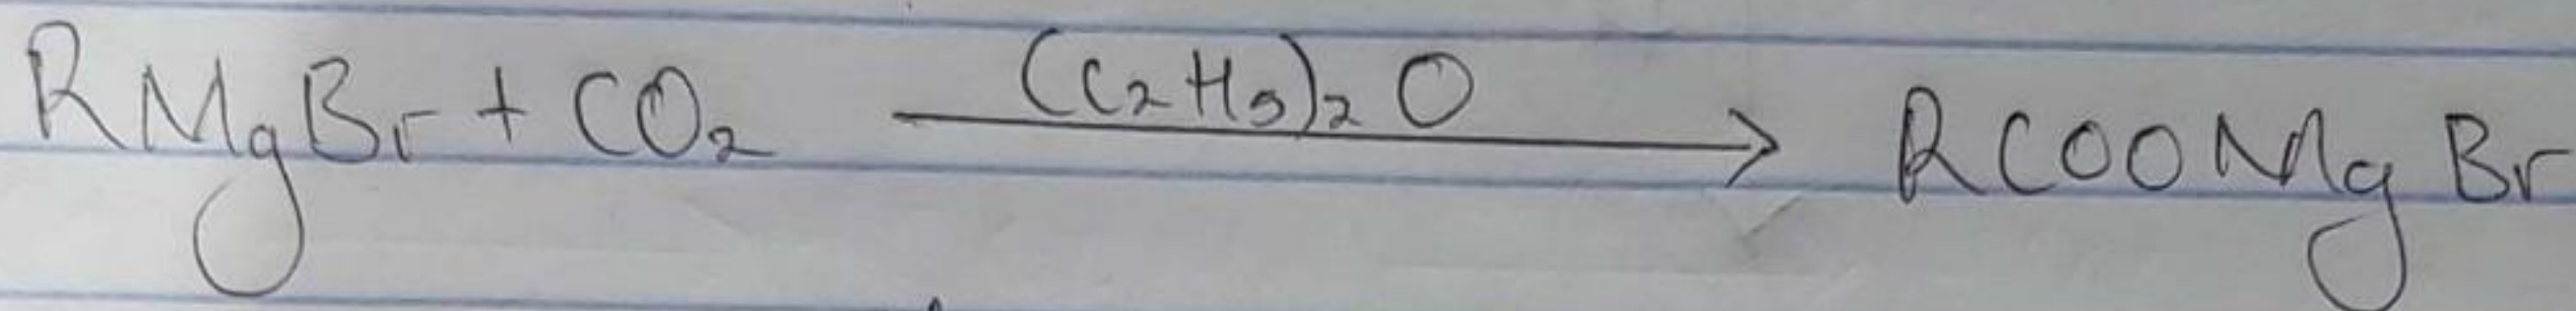 RMgBr + CO₂ (C₂H₅)₂O → RCOOMgBr